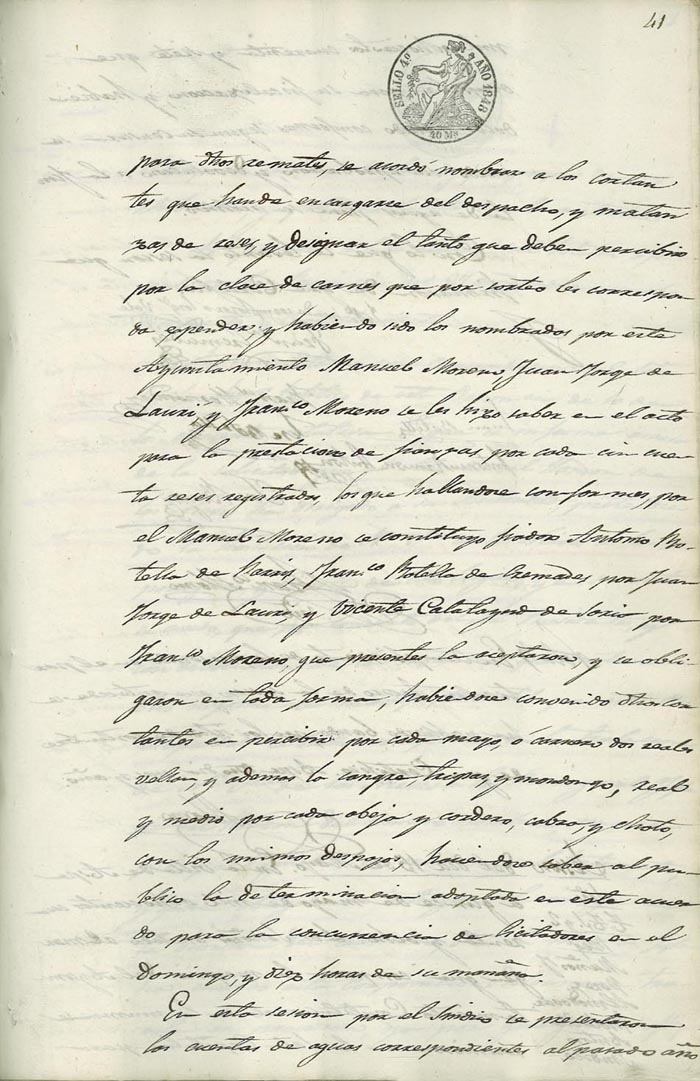 41
SELLO 4º AÑO 1848
40 Ms
para dhos remates, se acordó nombrar a los cortan
tes que han de encargarse del despacho, y matan
zas de reses, y designar el tanto que deben percibir
por la clase de carnes que por sorteo les correspon
da expender; y habiendo sido los nombrados por este
Ayuntamiento Manuel Moreno Juan Jorge de
Lauri, y Franco Moreno se les hizo saber en el acto
para la prestacion de fianzas por cada cincuen
ta reses registradas, los que hallandose conformes, por
el Manuel Moreno se constituyo fiador Antonio Bo-
tella de Franco Botella de Cremades por Juan
Jorge de Lauri, y Vicente Catalayud de Soris por
Franco Moreno, que presentes la aceptaron, y se obli-
garon en toda forma, habiendose convenido dhos cor
tantes en percibir por cada mayo, o carnero dos reales
vellon, y ademas la sangre, tripas, y mondongo, real
y medio por cada obeja y cordero, cabra, y choto,
con los mimos despojos, haciendose saber al pu
blico la determinacion adoptada en este acuer
do para la concurrencia de licitadores en el
Domingo, y diez horas de su mañana.
En esta sesion por el Sindico se presentaron
las cuentas de aguas correspondientes al pasado año